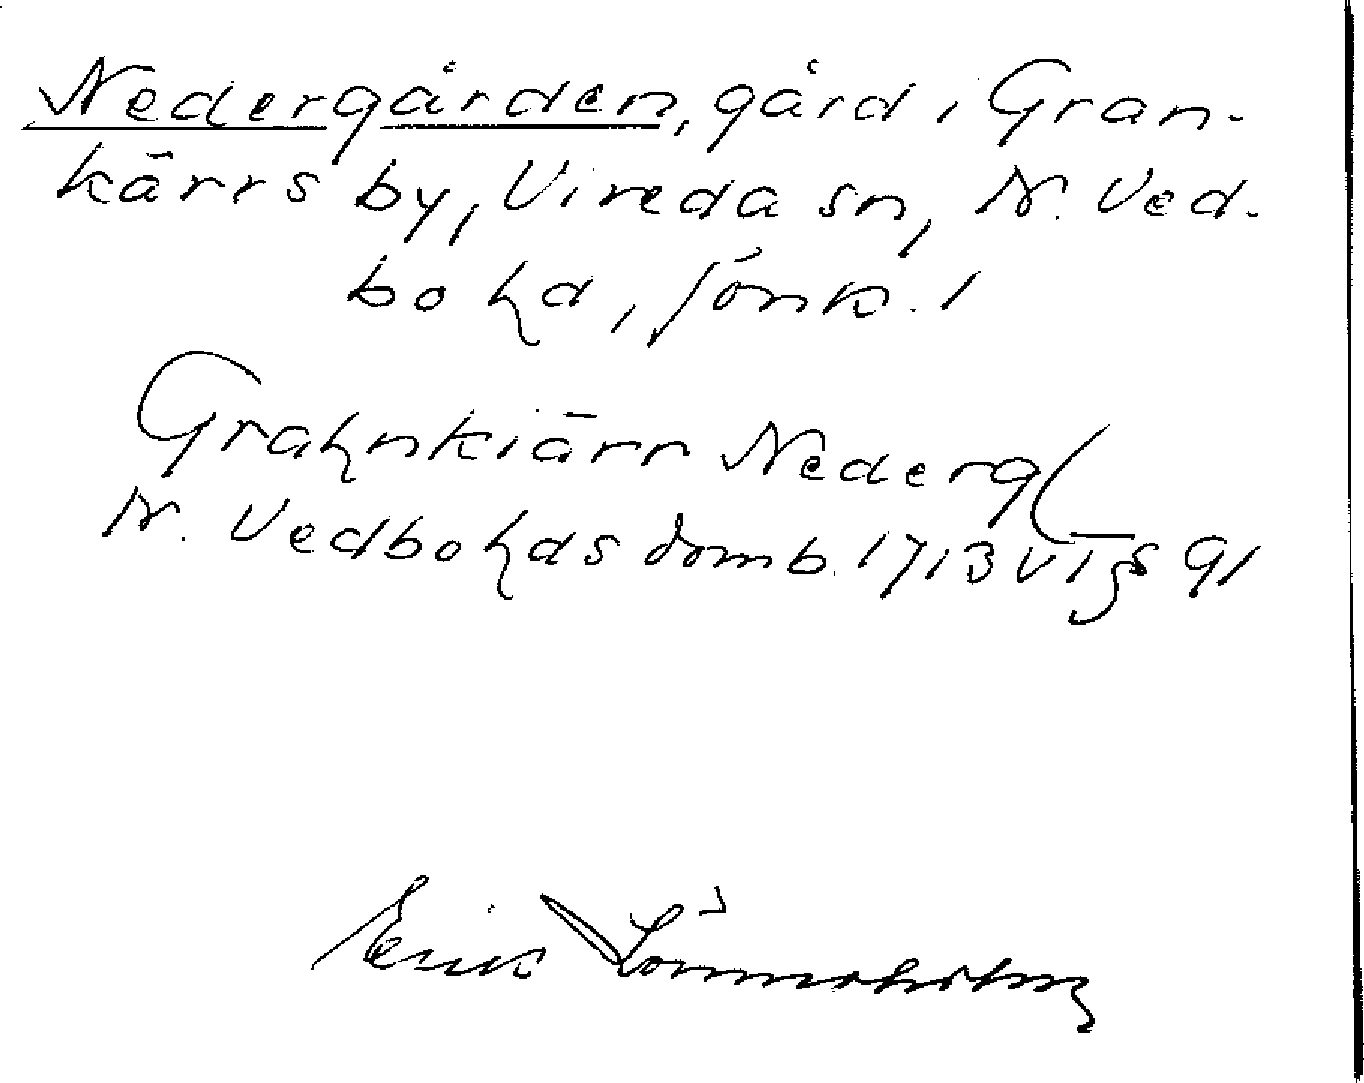 Nedergården, gård i Gran-
kärrs by, Vireda sn, N. Ved-
bo hd, Jönk. l
Grahnkiärr Nederg(
N. Vedbo hds domb. 1713 VT § 91
Erik Lönnerholm